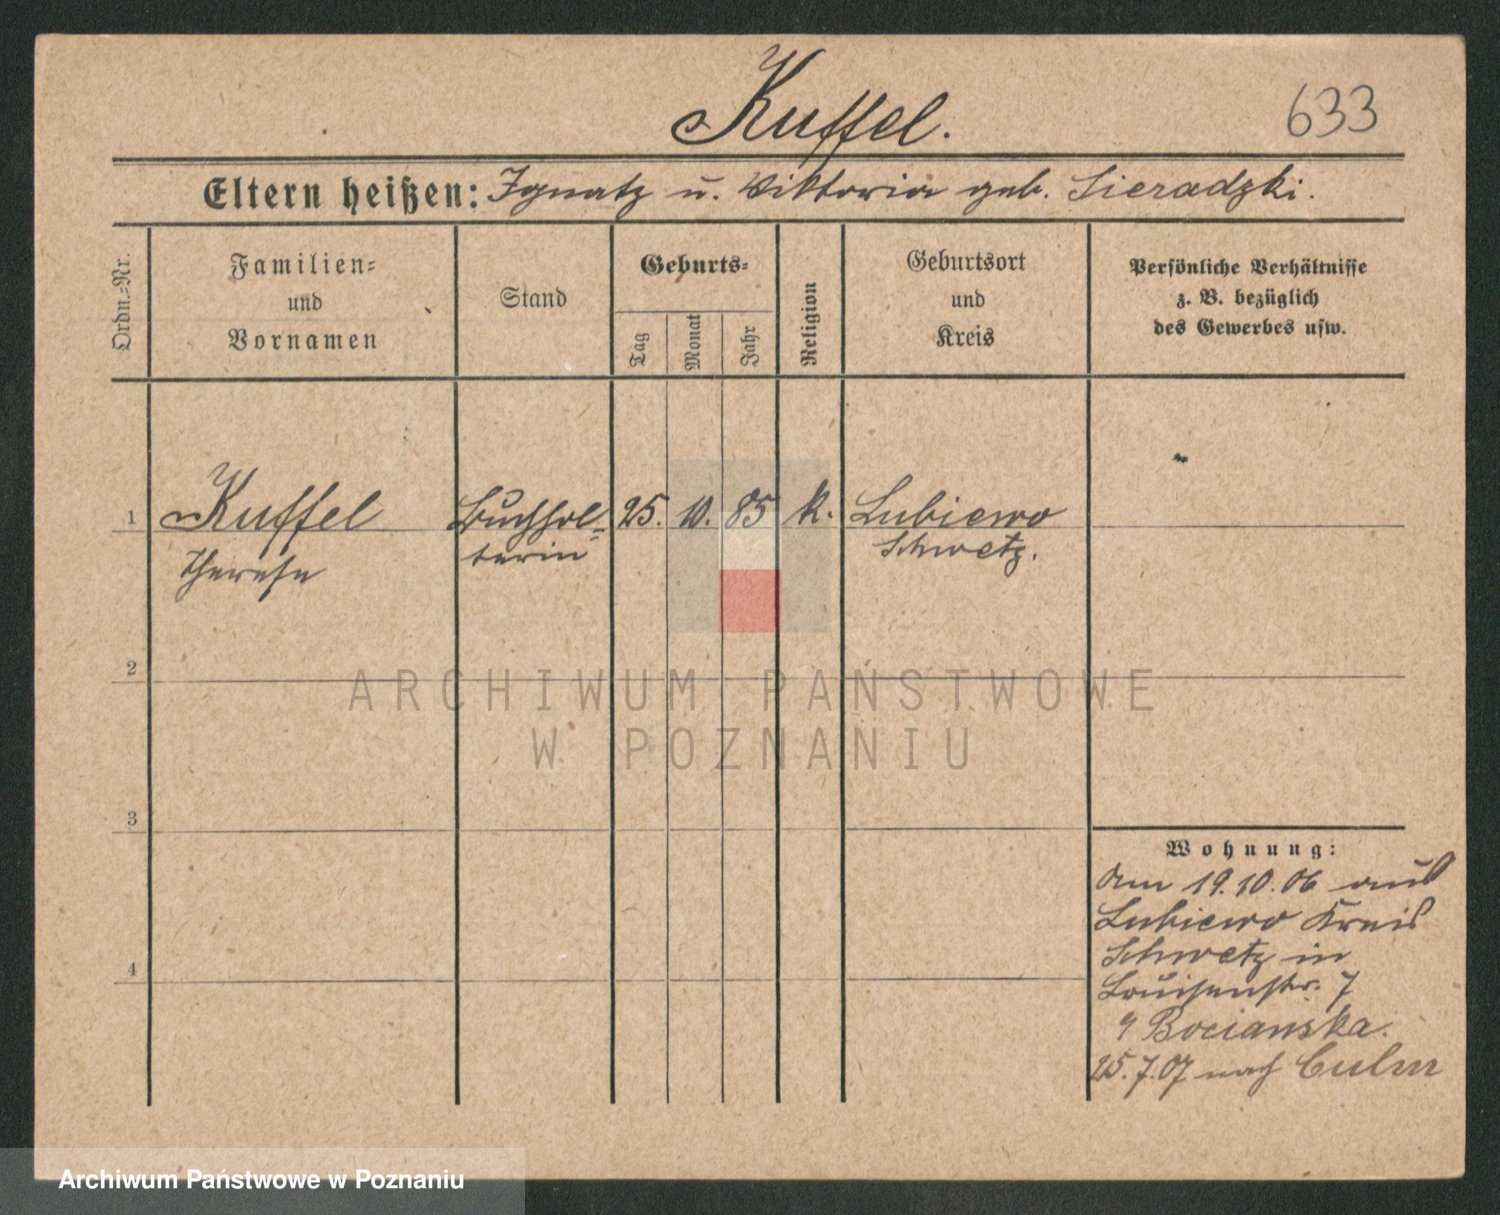 Kuffel.
633
Eltern heißen: Ignatz u. Viktoria geb. Sieradzki.
Ordn.-Nr.
Familien- und Vornamen
Stand
Geburts-
Tag
Monat
Jahr
Religion
Geburtsort und Kreis
Persönliche Verhältnisse
z. B. bezüglich
des Gewerbes usw.
1 Kuffel Buchhol- 25. 10. 85 k. Lubiewo
Therese terin Schwetz.
2
ARCHIWUM PAŃSTWOWE
W POZNANIU
3
Wohnung:
Am 19.10.06 aus
Lubiewo Kreis
Schwetz in
4
Louisenstr. 7
Bocianska.
25.7.07 nach Culm
Archiwum Państwowe w Poznaniu